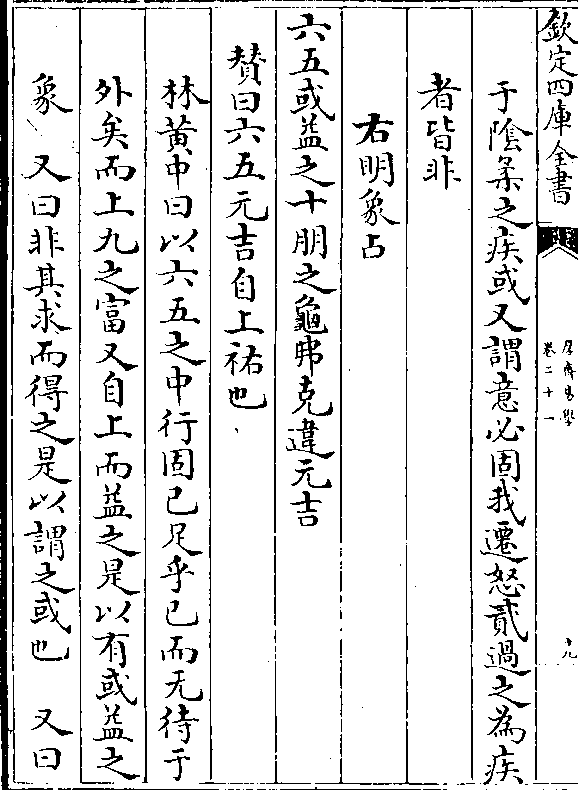 欽定四庫全書
厚齋易學
卷二十一
十九
于陰柔之疾或又謂意必固我遷怒貳過之為疾
者皆非
右明象占
六五或益之十朋之龜弗克違元吉
贊曰六五元吉自上祐也
林黃中曰以六五之中行固已足乎已而无待于
外矣而上九之富又自上而益之是以有或益之
象　又曰非其求而得之是以謂之或也　又曰